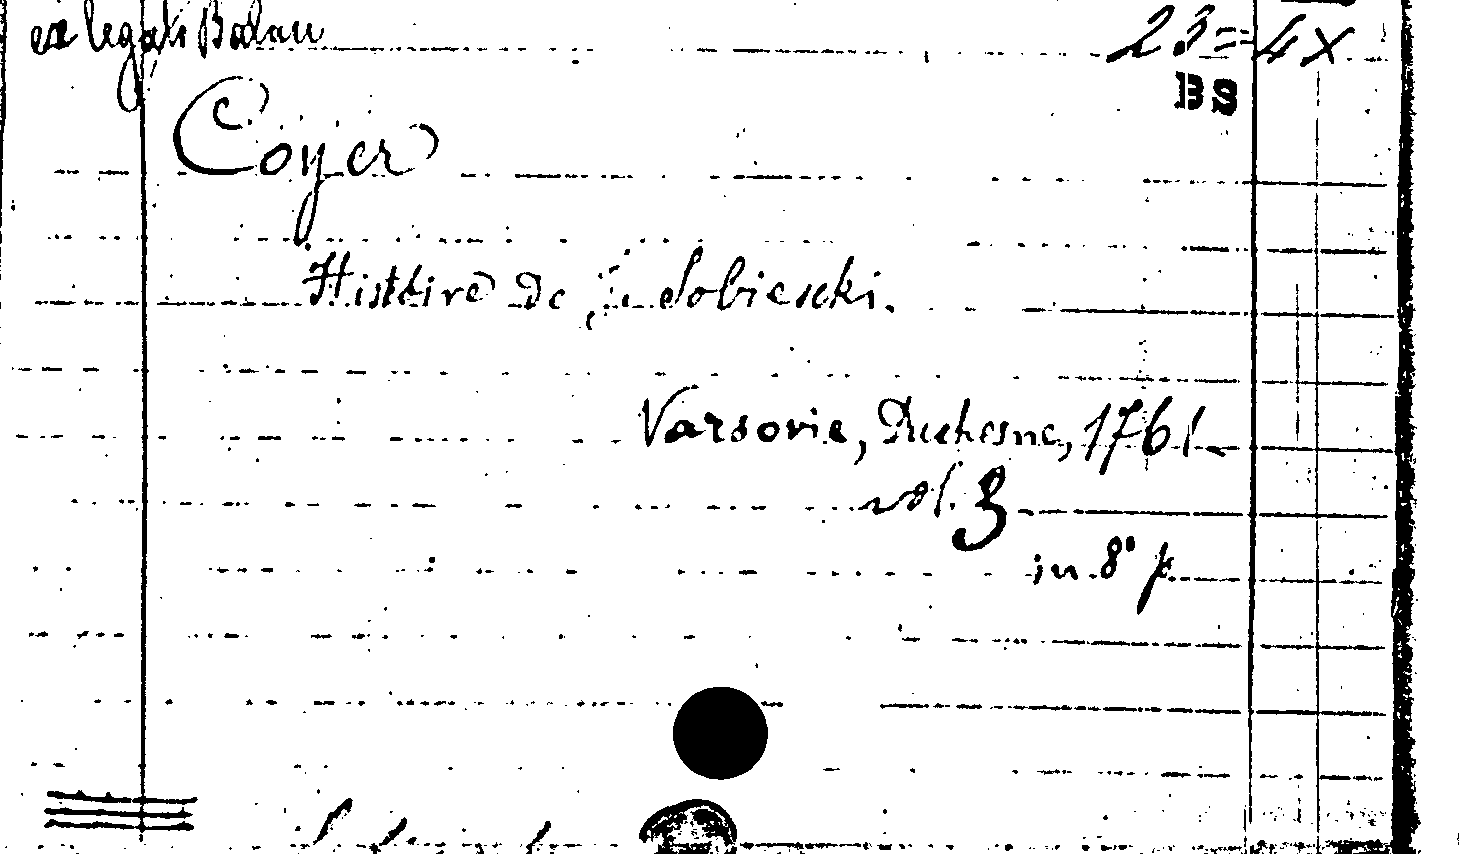 ex legato Balau
23=4X
BS
Coyer
Histoire de J. Sobiescki.
Varsovie, Duchesne, 1761
vol. 3
in 8° p.